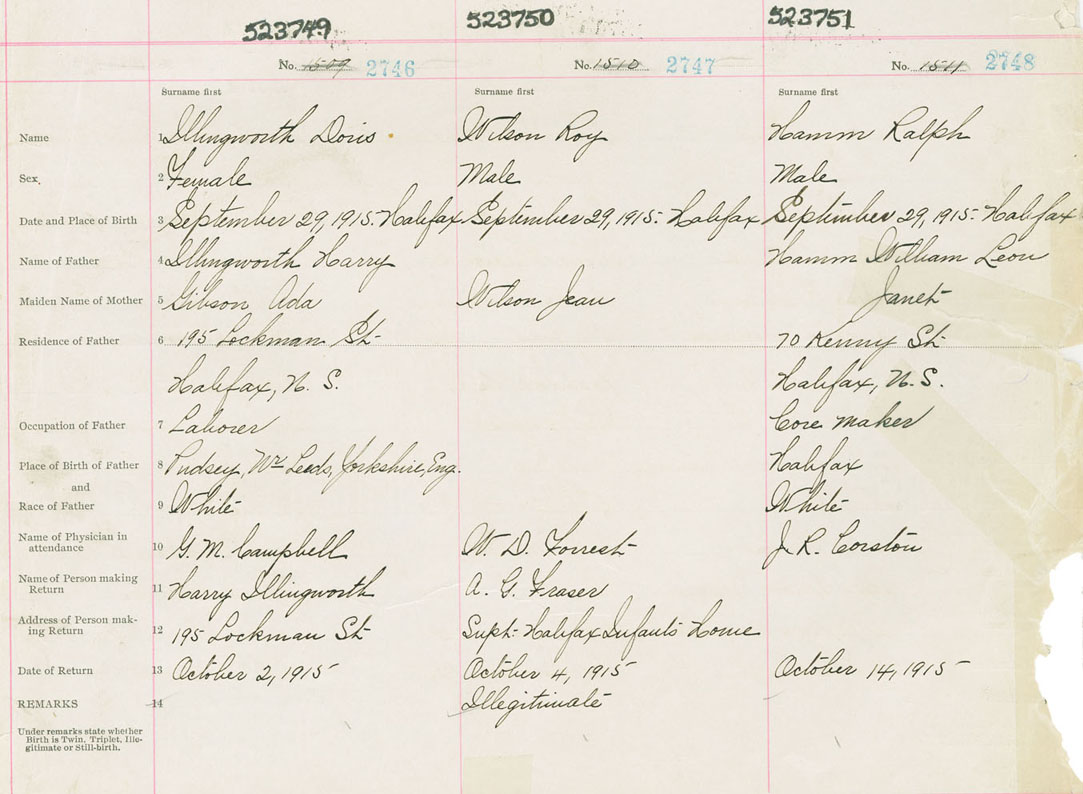 523749 523750 523751
No. 1509 2746 No. 1510 2747 No. 1511 2748
Surname first Surname first Surname first
Name 1 Illingworth Doris Wilson Roy Hamm Ralph
Sex. 2 Female Male Male
Date and Place of Birth 3 September 29, 1915. Halifax September 29, 1915. Halifax September 29, 1915. Halifax
Name of Father 4 Illingworth Harry Hamm William Leon
Maiden Name of Mother 5 Gibson Ada Wilson Jean Janet
Residence of Father 6 195 Lockman St 70 Kenny St
Halifax, N. S. Halifax, N. S.
Occupation of Father 7 Laborer Core maker
Place of Birth of Father 8 Pudsey, Nr Leeds, Yorkshire, Eng. Halifax
and
Race of Father 9 White White
Name of Physician in
attendance 10 G. M. Campbell W. D. Forrest J. R. Corston
Name of Person making
Return 11 Harry Illingworth A. G. Fraser
Address of Person mak-
ing Return 12 195 Lockman St Supt. Halifax Infants Home
Date of Return 13 October 2, 1915 October 4, 1915 October 14, 1915
REMARKS 14 Illegitimate
Under remarks state whether
Birth is Twin, Triplet, Ille-
gitimate or Still-birth.